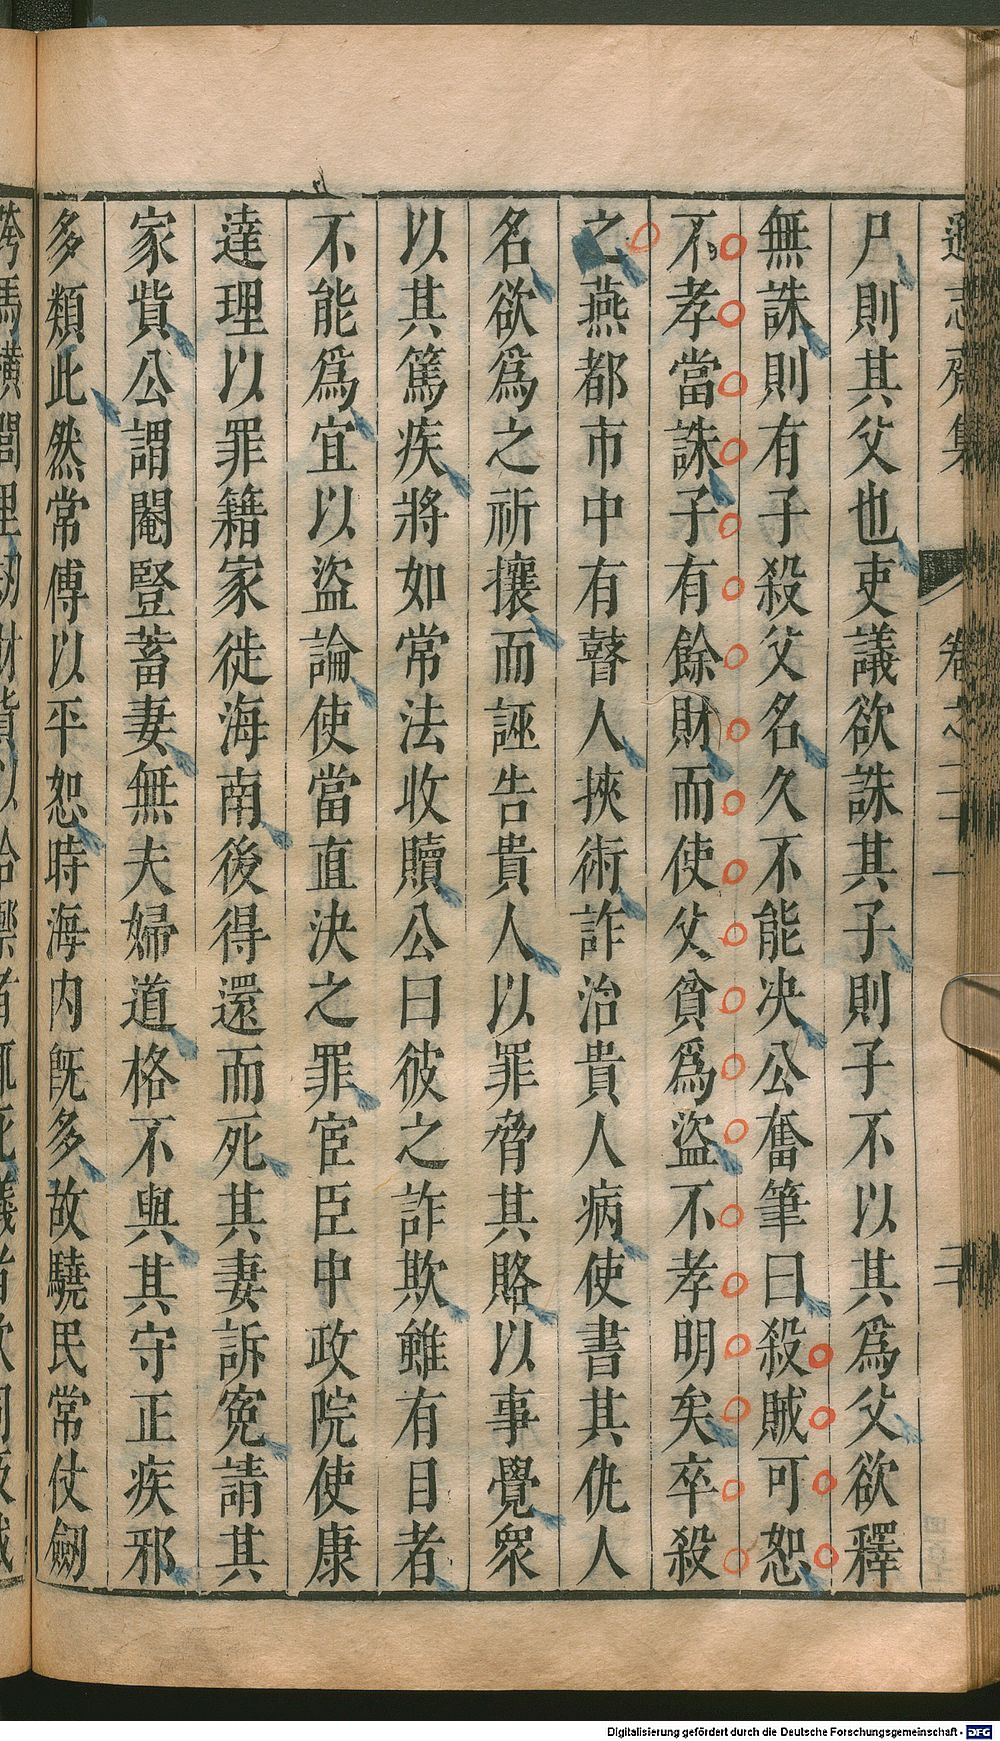 遜志齋集 卷之二十一 二十
尸則其父也吏議欲誅其子則子不以其爲父欲釋
無誅則有子殺父名久不能决公奮筆曰殺賊可恕
不孝當誅子有餘財而使父貧爲盜不孝明矣卒殺
之燕都市中有瞽人挾術詐治貴人病使書其仇人
名欲爲之祈攘而誣告貴人以罪脅其賂以事覺衆
以其篤疾將如常法收贖公曰彼之詐欺雖有目者
不能爲宜以盜論使當直決之罪宦臣中政院使康
達理以罪籍家徙海南後得還而死其妻訴寃請其
家貲公謂閹豎蓄妻無夫婦道格不與其守正疾邪
多類此然常傅以平恕時海内旣多故驍民常仗劒
Digitalisierung gefördert durch die Deutsche Forschungsgemeinschaft - DFG